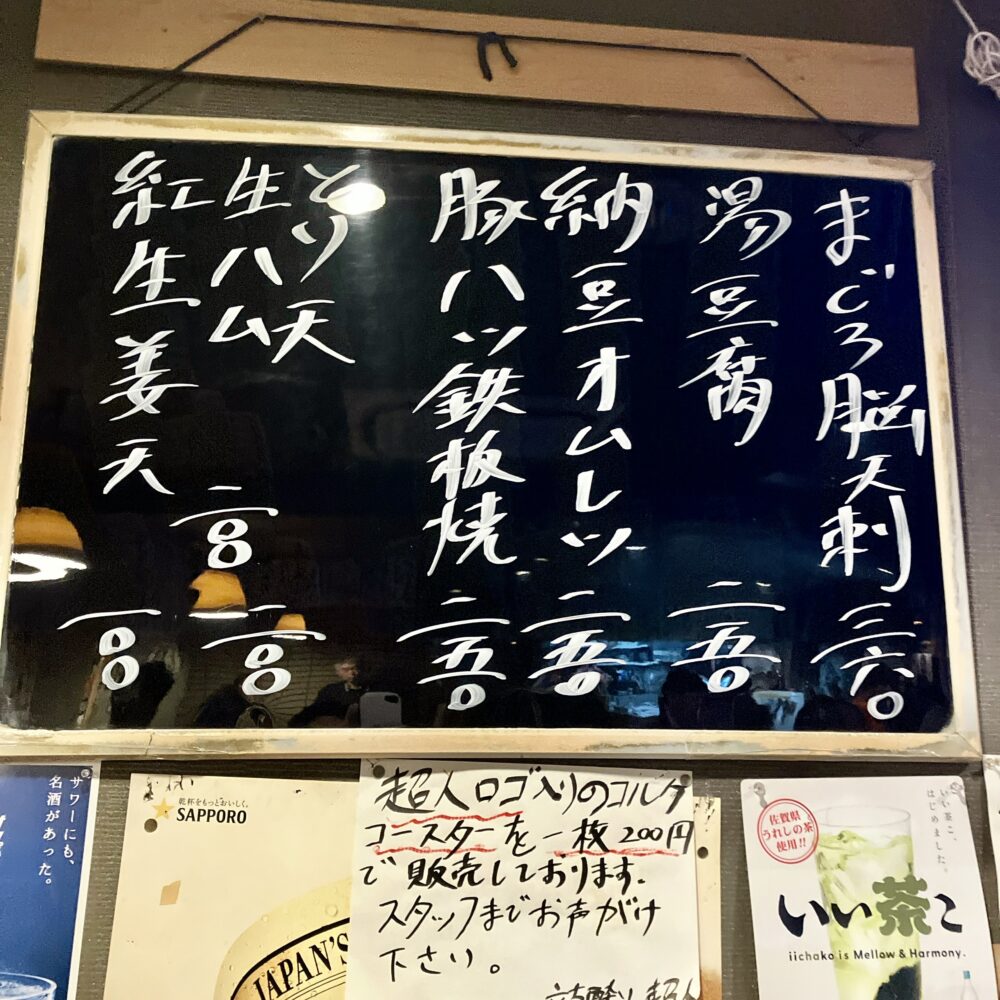 まぐろ脳天刺 三六〇
湯豆腐 二五〇
納豆オムレツ 二五〇
豚ハツ鉄板焼 二五〇
とり天 一八〇
生ハム 一八〇
紅生姜天 一〇〇
サワーにも、
名酒があった。
乾杯をもっとおいしく。
SAPPORO
JAPAN'S
超人ロゴ入りのコルク
コースターを一枚200円
で販売しております。
スタッフまでお声がけ
下さい。
超人
佐賀県
うれしの茶
使用!!
いい茶こ、
はじめました。
いい茶こ
iichako is Mellow & Harmony.